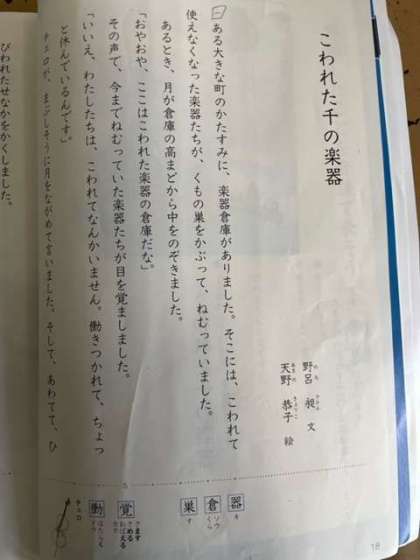 こわれた千の楽器
野呂 昶 文
天野 恭子 絵
一 ある大きな町のかたすみに、楽器倉庫がありました。そこには、こわれて
使えなくなった楽器たちが、くもの巣をかぶって、ねむっていました。
あるとき、月が倉庫の高まどから中をのぞきました。
「おやおや、ここはこわれた楽器の倉庫だな」。
その声で、今までねむっていた楽器たちが目を覚ましました。
「いいえ、わたしたちは、こわれてなんかいません。働きつかれて、ちょっ
と休んでいるんです」。
チェロが、まぶしそうに月をながめて言いました。そして、あわてて、ひ
びわれたせなかをかくしました。
器 キ
倉 ソウ くら
巣 す
覚 さます さめる おぼえる
働 はたらく
チェロ
18
5